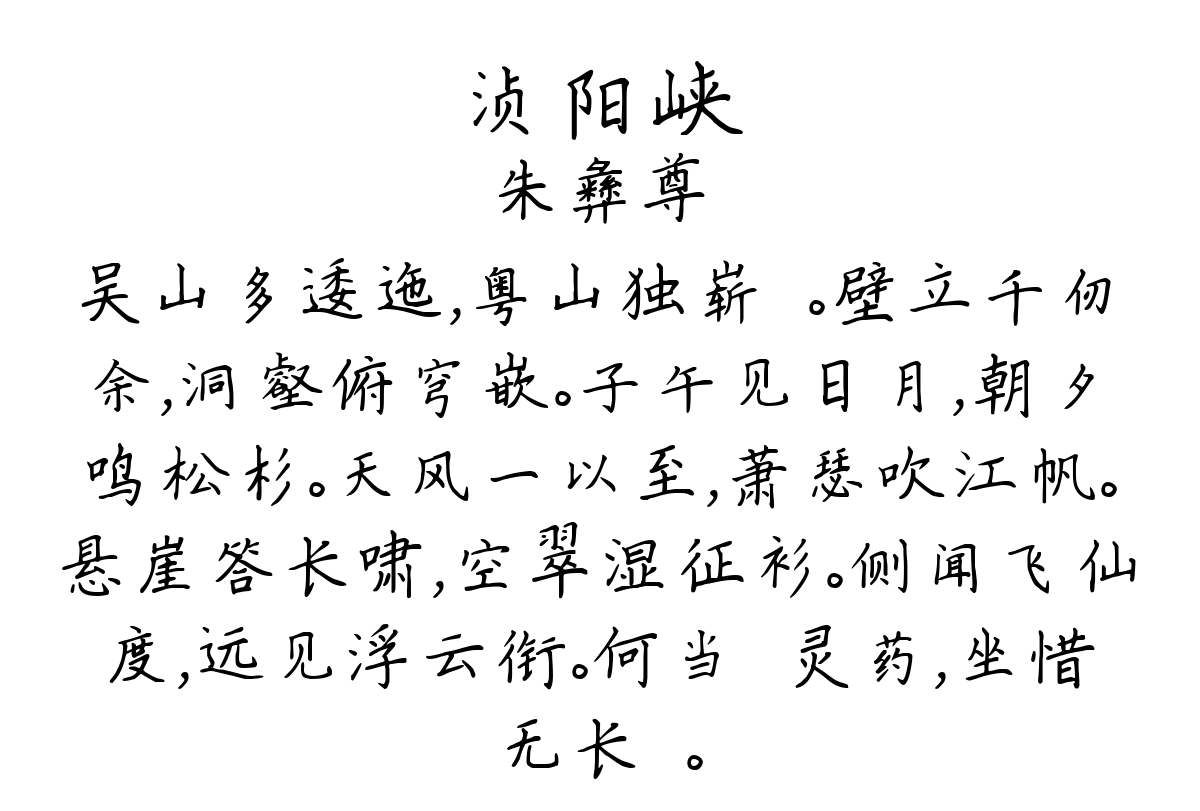 浈阳峡
朱彝尊
吴山多逶迤,粤山独崭 。壁立千仞
余,洞壑俯穹嵌。子午见日月,朝夕
鸣松杉。天风一以至,萧瑟吹江帆。
悬崖答长啸,空翠湿征衫。侧闻飞仙
度,远见浮云衔。何当 灵药,坐惜
无长 。